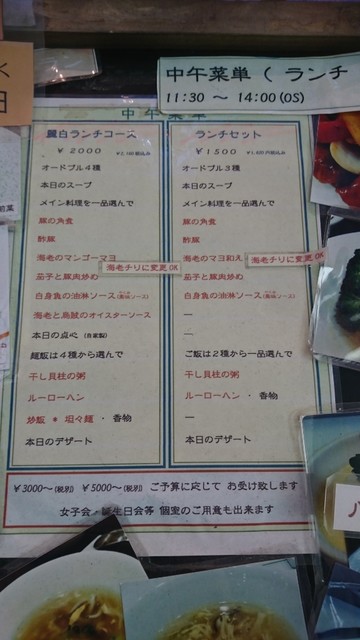 中午菜単 ( ランチ
11:30 ～ 14:00 (OS)
中午菜単
麗白ランチコース
￥2000
オードブル4種
本日のスープ
メイン料理を一品選んで
豚の角煮
酢豚
海老のマンゴーマヨ
海老チリに変更OK
茄子と豚肉炒め
白身魚の油淋ソース
海老と烏賊のオイスターソース
本日の点心 (自家製)
麺飯は4種から選んで
干し貝柱の粥
ルーローハン
炒飯 * 坦々麺 ・ 香物
本日のデザート
ランチセット
￥1500
オードブル3種
本日のスープ
メイン料理を一品選んで
豚の角煮
酢豚
海老のマヨ和え
海老チリに変更OK
茄子と豚肉炒め
白身魚の油淋ソース
—
—
ご飯は2種から一品選んで
干し貝柱の粥
ルーローハン ・ 香物
—
本日のデザート
￥3000～(税別) ￥5000～(税別) ご予算に応じて お受け致します
女子会／誕生日会等 個室のご用意も出来ます